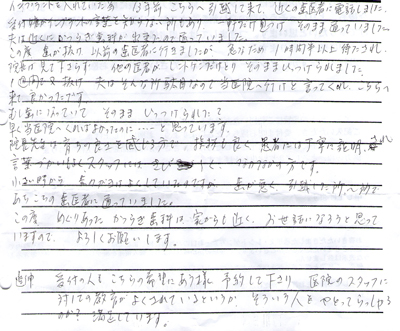 インプラントを入れている為 12年前 こちらへ引越して来て、近くの歯医者に電話しました。
受付様がインプラントの言葉を 所もあり 一軒だけ見つけ そのまま通っていました。
夫は近くに が出来たので 通っていました。
この度 歯が抜け 以前の歯医者に行きましたが 急なため 1時間半以上待たされ、
院長は見て下さらず 他の医者が レントゲンだけとり そのままひっつけられました。
1週間で又抜け 夫は そんな所駄目なので当医院へ行けと言ってくれ、こちらへ
来て良かったです。
むし歯になっていて そのまま ひっつけられた?
早く当医院へくればよかったのに……と思っています。
院長先生は 育ちの良さを感じる方で、技術も良く 患者には丁寧に説明され
言葉づかいもよく スタッフには きびしく、 の方です。
小さい時から 歯みがきはよくしていたのですが 歯が悪く 引越した所、所で
あちこちの歯医者に通っていました。
この度 めぐりあった かつらぎ歯科は 家からも近く、お世話になろうと思って
いますので、よろしくお願いします。
追伸 受付の人も こちらの希望にあう様 予約して下さり 医院のスタッフに
対しての教育がよくされているというか、そういう人を やとってらっしゃる
のか? 満足しています。